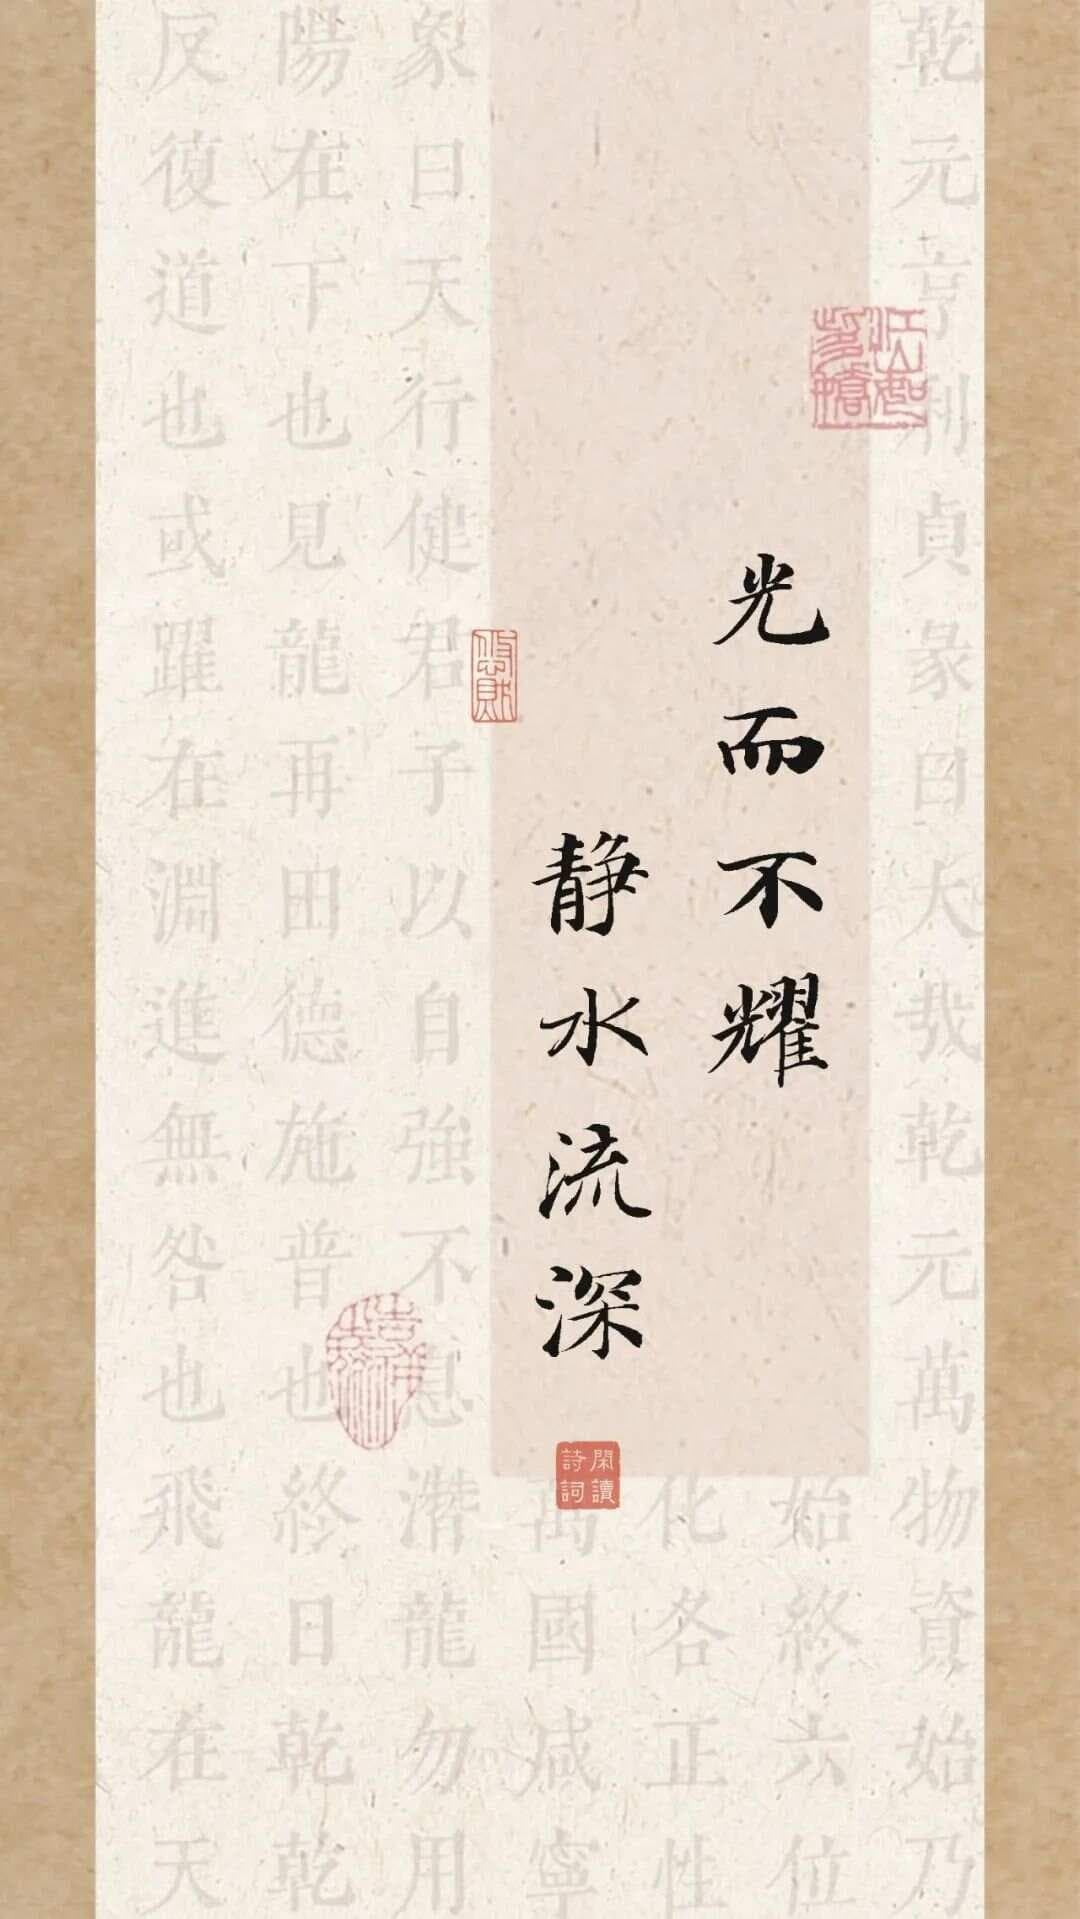 光而不耀
静水流深
閑讀
詩詞
乾元亨利貞彖曰大哉乾元萬物資始乃
始終六位
化各正性
萬國咸寧
象曰天行健君子以自強不息潛龍勿用
陽在下也見龍再田德施普也終日乾乾
反復道也或躍在淵進無咎也飛龍在天